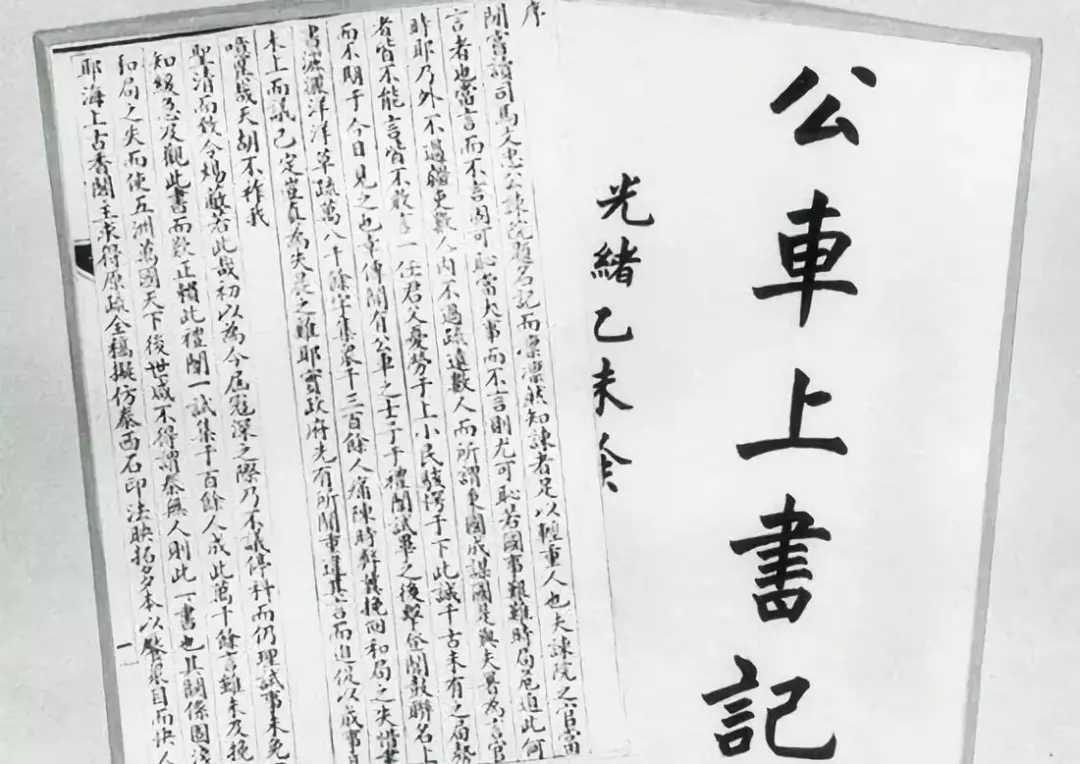 公車上書記
光緒乙未
序
間嘗讀司馬文忠公諫院題名記而凜凜然知諫者足以輕重人也夫諫院之官當
言者也當言而不言固可恥當大事而不言則尤可恥若國事艱難時局危迫此何
時耶乃外不過疆吏數人內不過疏遠數人而所謂東國成謀國是與夫署為言官
者皆不能言皆不敢言一任君父憂勞于上小民駭愕于下此誠千古未有之局
而不期于今日見之也幸傳聞有公車之士于禮闈試畢之後擊登聞鼓聯名上
書灑灑洋洋草疏萬八千餘字集眾千三百餘人痛陳時弊冀挽回和局之失惜書
未上而議已定豈真為失是之難耶實政府先有所聞重違其言而迫促以成事
噫蒼蒼天胡不祚我
聖清而致令竭蹙若此哉初以為今屆寇深之際乃不議停科而仍理試事未免
知緩急及觀此書而歎正賴此禮闈一試集千百餘人成此萬千餘言雖未及挽
和局之失而使五洲萬國天下後世咸不得謂秦無人則此一書也其關係國
耶海上古香閣主求得原疏全稿擬仿泰西石印法映拓多本以饜眾目而快人
一